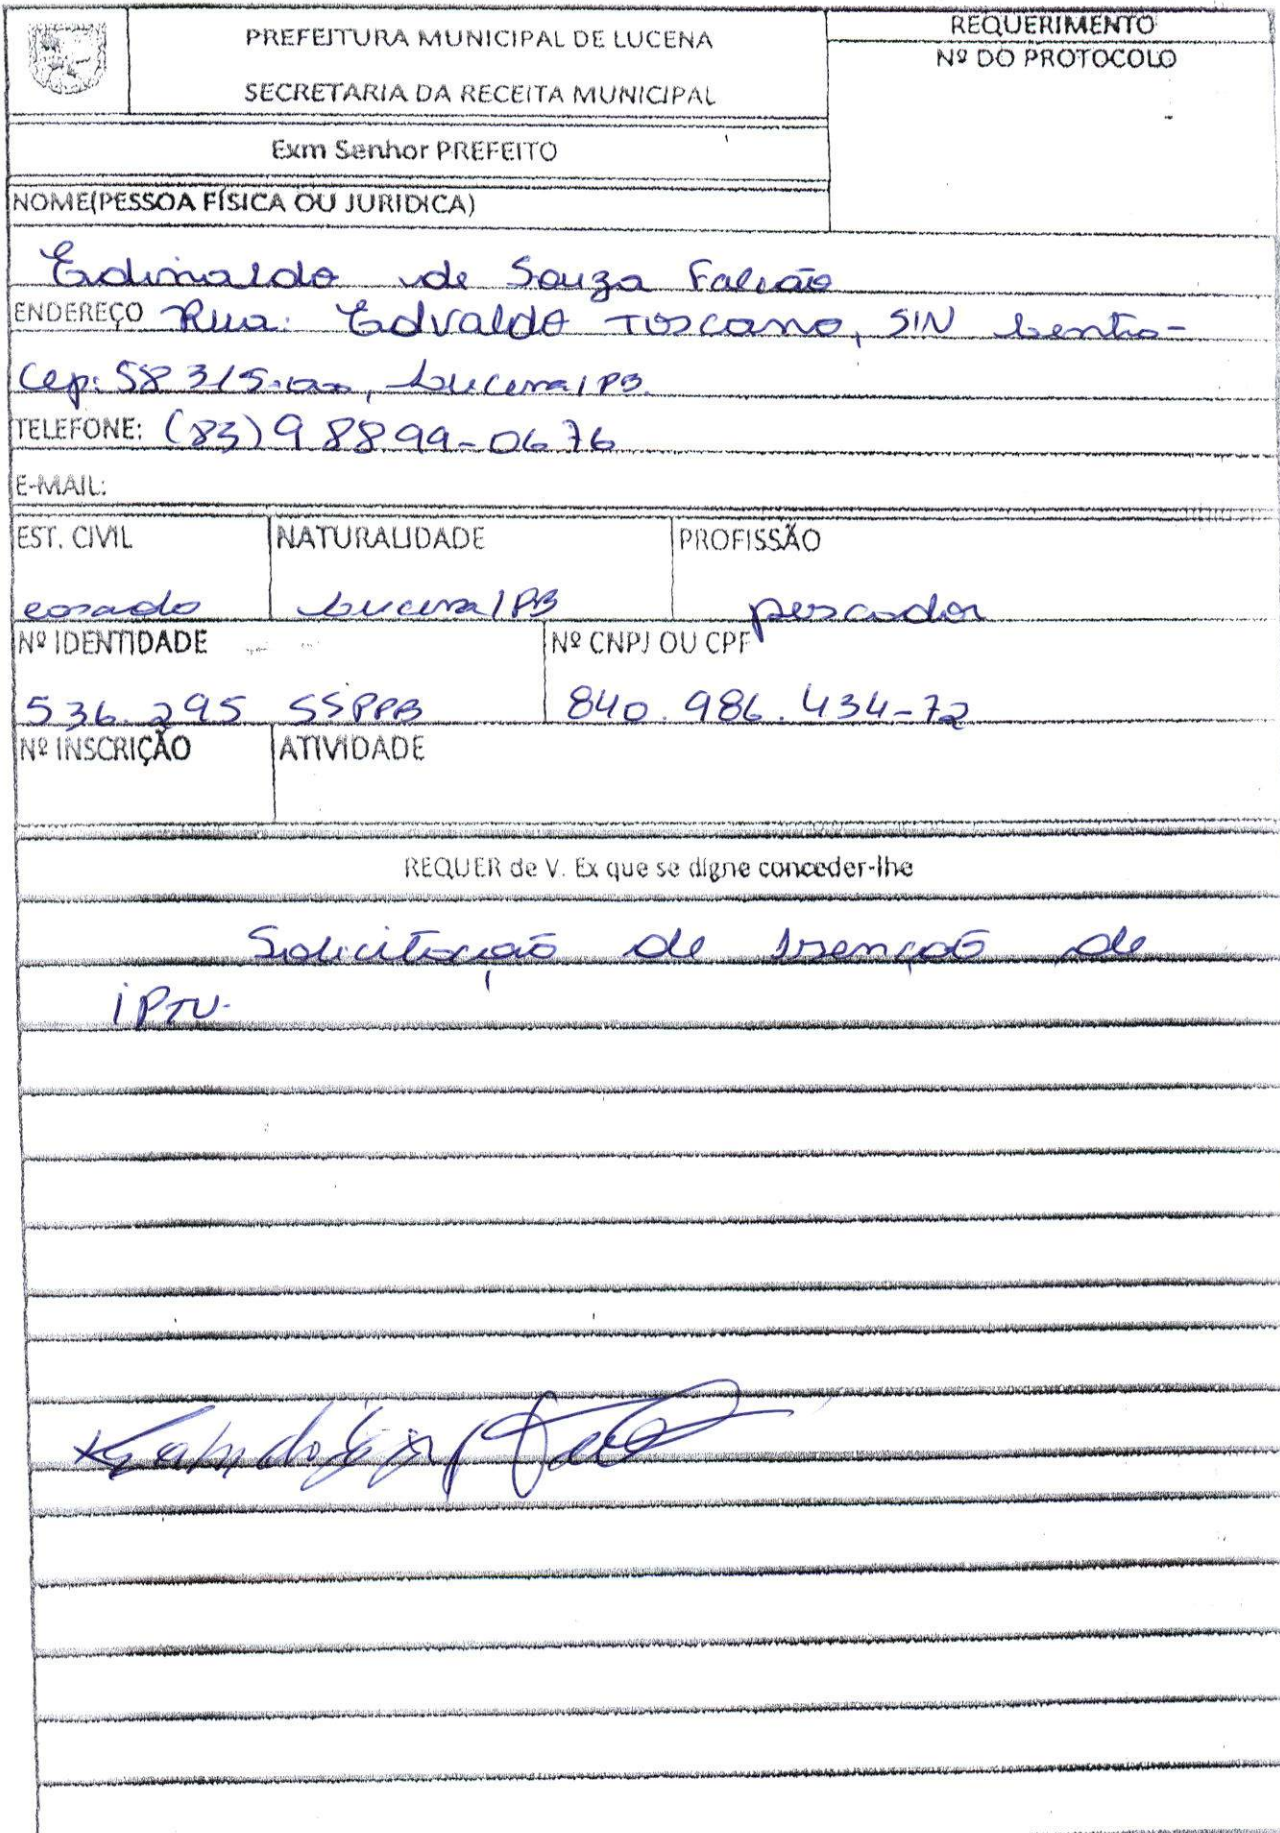 PREFEITURA MUNICIPAL DE LUCENA
SECRETARIA DA RECEITA MUNICIPAL
REQUERIMENTO
Nº DO PROTOCOLO
Exm Senhor PREFEITO
NOME(PESSOA FÍSICA OU JURIDICA)
Edinaldo de Souza Falcão
ENDEREÇO Rua: Edvaldo Toscano, S/N Centro-
Cep: 58315-000, Lucena/PB.
TELEFONE: (83) 9 8899-0676
E-MAIL:
EST. CIVIL NATURALIDADE PROFISSÃO
casado Lucena/PB pescador
Nº IDENTIDADE Nº CNPJ OU CPF
536.295 SSPPB 840.986.434-72
Nº INSCRIÇÃO ATIVIDADE
REQUER de V. Ex que se digne conceder-lhe
Solicitação de Isenção de
IPTU.